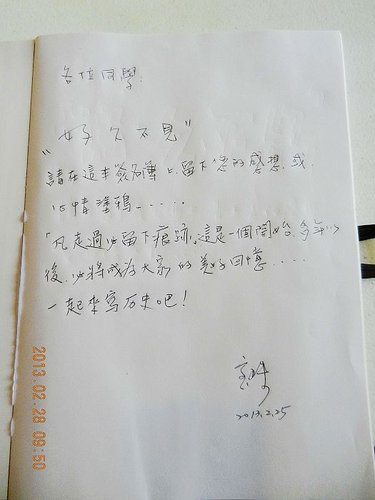 各位同學:
"好久不見"
請在這本簽名簿上留下您的感想.或.
心情塗鴉......
「凡走過必留下痕跡」,這是一個開始多年以
後.必將成為大家的美好回憶....
一起來寫历史吧!
2013.2.25
2013.02.28 09:50